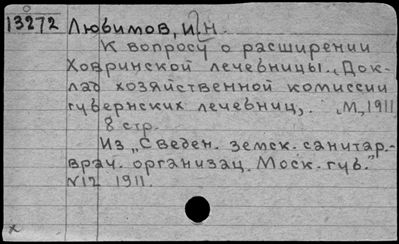 13272 Любимов, И.Н.
К вопросу о расширении
Ховринской лечебницы. „Док-
лад хозяйственной комиссии
губернских лечебниц,. М, 1911
8 стр.
Из „Сведен. земск. санитар.-
врач. организац. Моск. губ."
N12 1911.
x